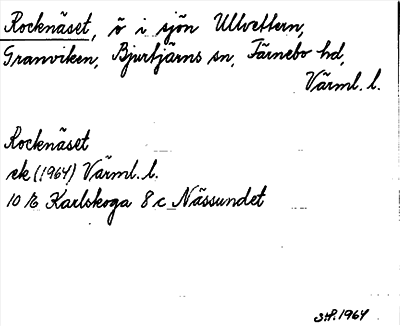 Rocknäset, ö i sjön Ullvettern,
Granviken, Bjurtjärns sn, Färnebo hd,
Värml. l.
Rocknäset
ek (1964) Värml. l.
10 E Karlskoga 8 c Nässundet
SHP. 1964